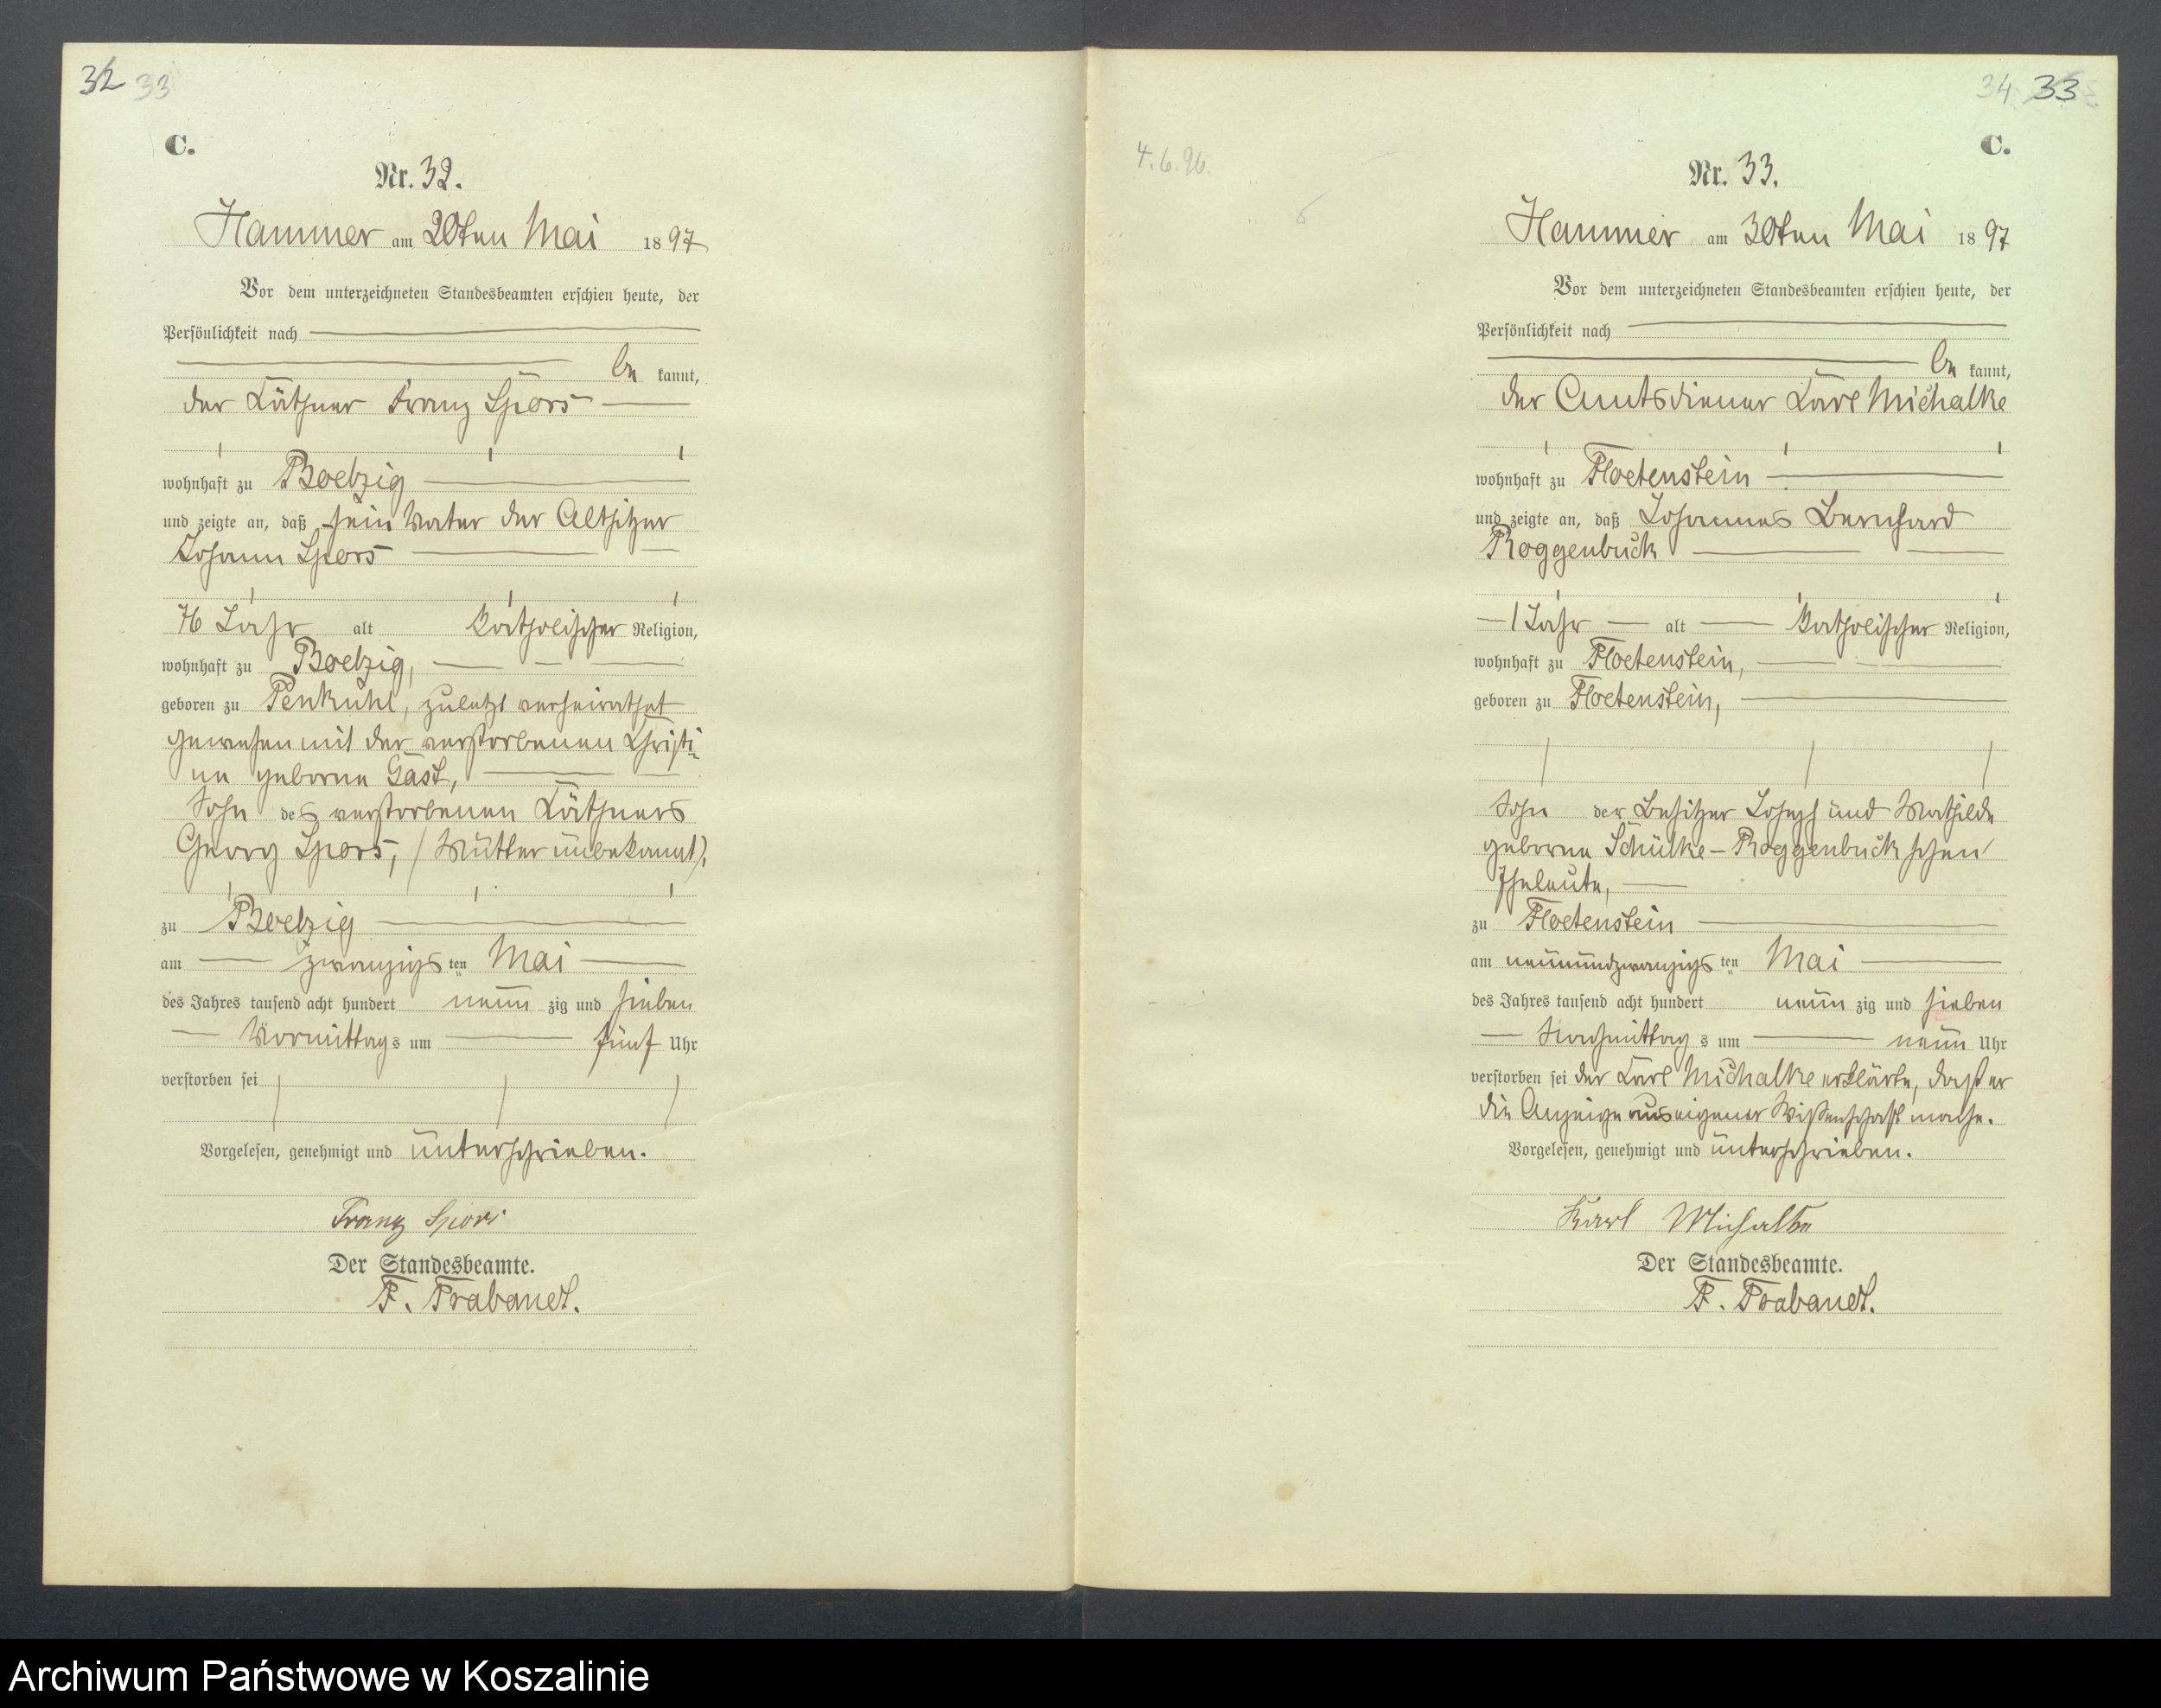 32 33
C.
Nr. 32.
Hammer am 20ten Mai 1897
Vor dem unterzeichneten Standesbeamten erschien heute, der
Persönlichkeit nach
be kannt,
der Käthner Franz Spors
wohnhaft zu Boelzig
und zeigte an, daß sein Vater der Altsitzer
Johann Spors
76 Jahr alt katholischer Religion,
wohnhaft zu Boelzig,
geboren zu Penkuhl, zuletzt verheirathet
gewesen mit der verstorbenen Christi-
ne geborne Gast,
Sohn des verstorbenen Käthners
Georg Spors, (Mutter unbekannt),
zu Boelzig
am zwanzigs ten Mai
des Jahres tausend acht hundert neun zig und sieben
Vormittags um fünf Uhr
verstorben sei
Vorgelesen, genehmigt und unterschrieben.
Franz Spors
Der Standesbeamte.
F. Trabandt.
34 33
4.6.96.
C.
Nr. 33.
Hammer am 30ten Mai 1897
Vor dem unterzeichneten Standesbeamten erschien heute, der
Persönlichkeit nach
be kannt,
der Amtsdiener Karl Michalke
wohnhaft zu Floetenstein
und zeigte an, daß Johannes Bernhard
Roggenbuck
1 Jahr alt katholischer Religion,
wohnhaft zu Floetenstein,
geboren zu Floetenstein,
Sohn der Besitzer Joseph und Mathilde
geborne Schülke-Roggenbuck schen
Eheleute,
zu Floetenstein
am neunundzwanzigs ten Mai
des Jahres tausend acht hundert neun zig und sieben
Nachmittag s um neun Uhr
verstorben sei der Karl Michalke erklärte, daß er
die Anzeige aus eigener Wißenschaft mache.
Vorgelesen, genehmigt und unterschrieben.
Karl Michalke
Der Standesbeamte.
F. Trabandt.
Archiwum Państwowe w Koszalinie